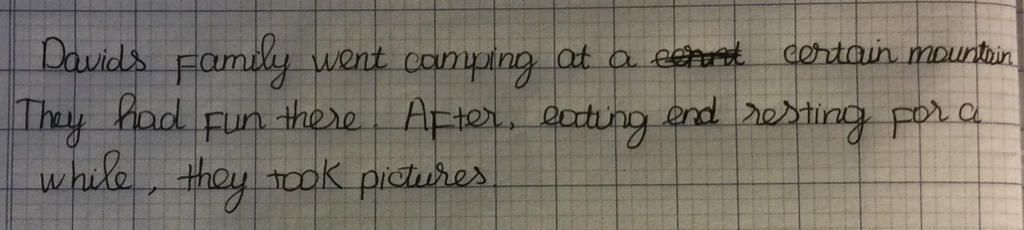 Davids Family went camping at a certain mountain
They had fun there. After, eating end resting for a
while, they took pictures